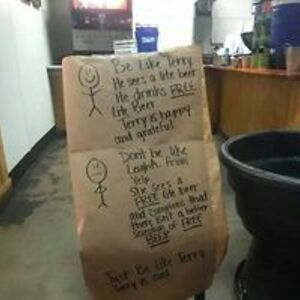 Be Like Terry
He sees a lite beer
He drinks FREE
Lite Beer
Terry is happy
and grateful
Don't be like
Leigh A. From
Yelp
She sees a
FREE lite beer
and complains that
there isn't a better
selection of FREE
BEER
Just Be Like Terry